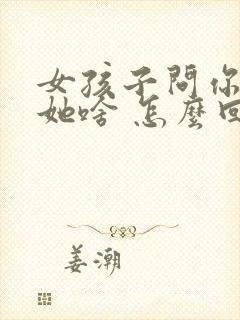 女孩子問你
她啥 怎麼回
姜潮